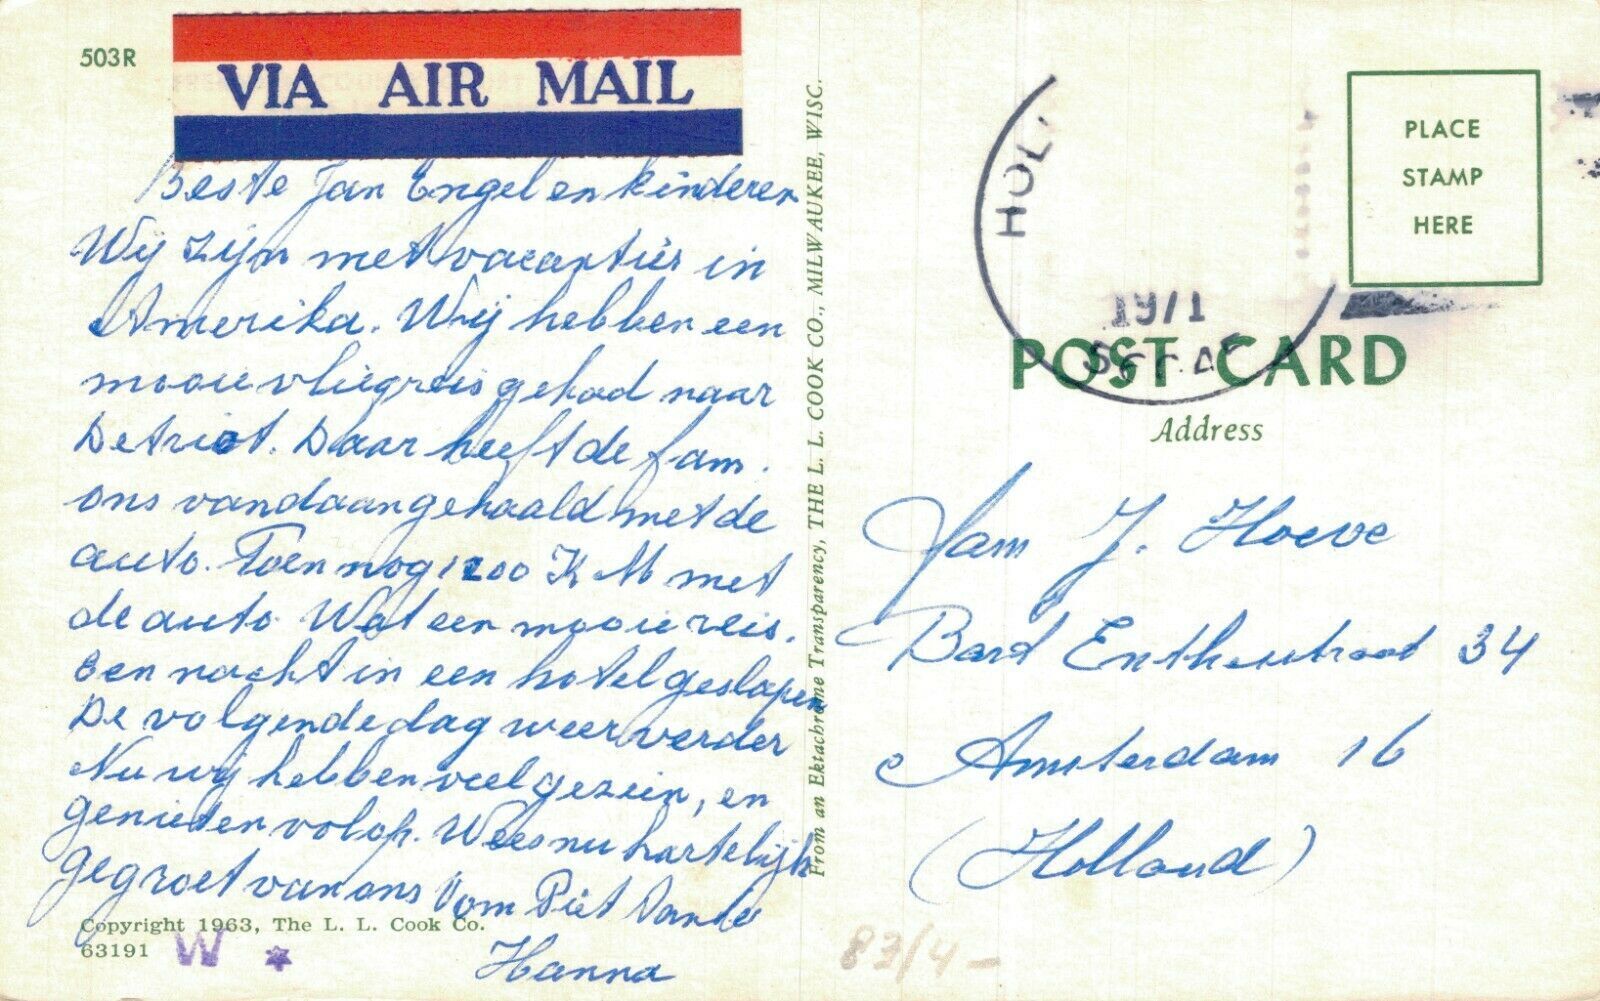 503R
VIA AIR MAIL
Beste Jan Engel en kinderen
Wij zijn met vacantiës in
Amerika. Wij hebben een
mooie vliegreis gehad naar
Detriot. Daar heeft de fam.
ons vandaangehaald met de
auto. Toen nog 1200 KM met
de auto Wat een mooie reis.
Een nacht in een hotel geslapen
De volgende dag weer verder
Nu wij hebben veel gezein, en
genieten volop. Wees nu hartelijk
gegroet van ons Oom Piet Tante
Hanna
Copyright 1963, The L. L. Cook Co.
63191
W
From an Ektachrome Transparency, THE L. L. COOK CO., MILWAUKEE, WISC.
HOL
1971
PLACE
STAMP
HERE
POST CARD
Address
Fam J. Hoeve
34
Amsterdam 16
(Holland)
83/4-